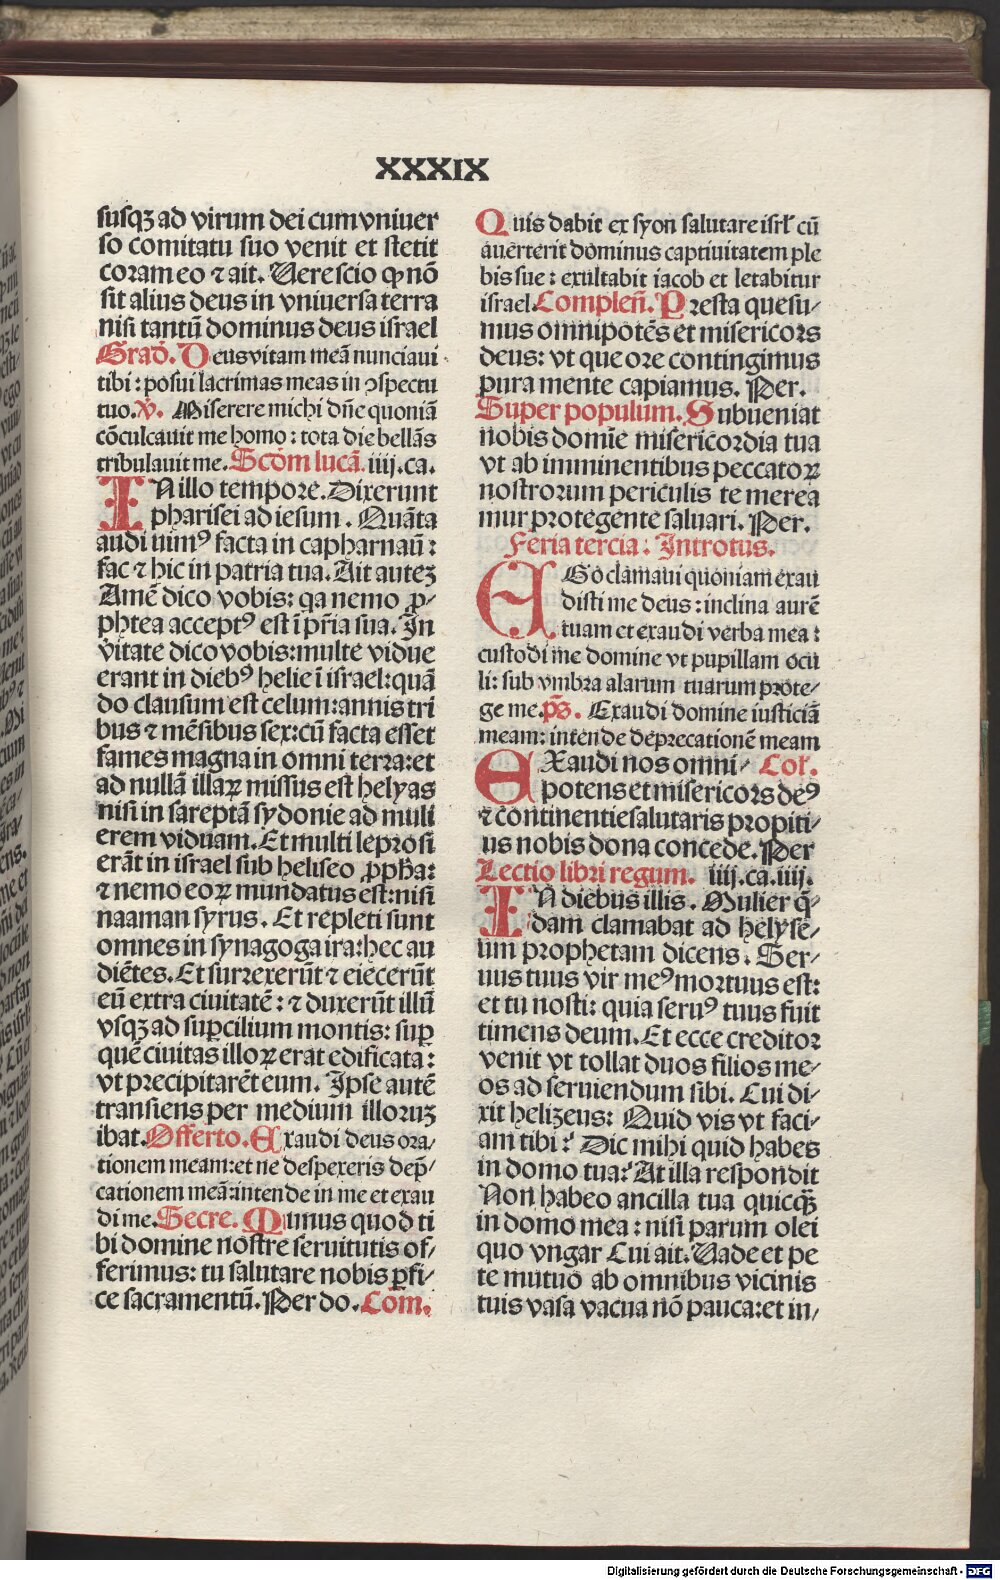 XXXIX
susqꝫ ad virum dei cum vniuer
so comitatu suo venit et stetit
coram eo ⁊ ait. Uere scio ꝙ nō
sit alius deus in vniuersa terra
nisi tantū dominus deus israel
Grad̄. Deus vitam meā nunciaui
tibi : posui lacrimas meas in ↄspectu
tuo. V̄. Miserere michi dn̄e quoniā
cōculcauit me homo : tota die bellās
tribulauit me. Scd̄m lucā. iiij. ca.
IN illo tempore. Dixerunt
pharisei ad iesum . Quāta
audiuimꝰ facta in capharnaū :
fac ⁊ hic in patria tua. Ait auteꝫ
Amē dico vobis: qa nemo ꝓ-
phtea acceptꝰ est ī pr̄ia sua. In
vitate dico vobis: multe vidue
erant in diebꝰ helie ī israel: quā
do clausum est celum: annis tri
bus ⁊ mēsibus sex: cū facta esset
fames magna in omni terra: et
ad nullā illaꝝ missus est helyas
nisi in sareptā sydonie ad muli
erem viduam. Et multi leprosi
erāt in israel sub heliseo ꝓpha:
⁊ nemo eoꝝ mundatus est: nisi
naaman syrus. Et repleti sunt
omnes in synagoga ira: hec au
diētes. Et surrexerūt ⁊ eiecerūt
eū extra ciuitatē : ⁊ duxerūt illū
vsqꝫ ad suꝑcilium montis: suꝑ
quē ciuitas illoꝝ erat edificata :
vt precipitarēt eum. Ipse autē
transiens per medium illoruꝫ
ibat. Offerto. Exaudi deus ora-
tionem meam: et ne despexeris dep̄-
cationem meā: intende in me et exau
di me. Secre. Munus quod ti
bi domine nostre seruitutis of-
ferimus: tu salutare nobis ꝑfi-
ce sacramentū. Per do. Com̄.
Quis dabit ex syon salutare isrł cū
auerterit dominus captiuitatem ple
bis sue : exultabit iacob et letabitur
israel. Compleñ. Presta quesu-
mus omnipotēs et misericors
deus: vt que ore contingimus
pura mente capiamus. Per.
Super populum. Subueniat
nobis domīe misericordia tua
vt ab imminentibus peccatoꝝ
nostrorum periculis te merea
mur protegente saluari. Per.
Feria tercia. Introtus.
EGo clamaui quoniam exau
disti me deus : inclina aurē
tuam et exaudi verba mea :
custodi me domine vt pupillam ocu
li : sub vmbra alarum tuarum prote-
ge me. p̄s. Exaudi domine iusticiā
meam: intende deprecationē meam
EXaudi nos omni- Coł.
potens et misericors deꝰ
⁊ continentie salutaris propiti-
us nobis dona concede. Per
Lectio libri regum. iiij. ca. iiij.
IN diebus illis . Mulier q̄-
dam clamabat ad helyse-
um prophetam dicens . Ser-
uus tuus vir meꝰ mortuus est:
et tu nosti: quia seruꝰ tuus fuit
timens deum. Et ecce creditor
venit vt tollat duos filios me-
os ad seruiendum sibi. Cui di-
xit helizeus: Quid vis vt faci-
am tibi ? Dic mihi quid habes
in domo tua? At illa respondit
Non habeo ancilla tua quicqꝫ̄
in domo mea : nisi parum olei
quo vngar Cui ait. Uade et pe
te mutuo ab omnibus vicinis
tuis vasa vacua nō pauca: et in-
Digitalisierung gefördert durch die Deutsche Forschungsgemeinschaft - DFG